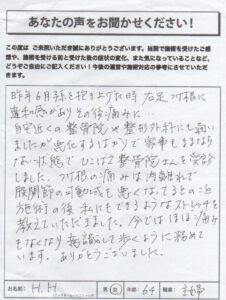 あなたの声をお聞かせください!
この度は ご来院いただき誠にありがとうございます。当院で施術を受けたご感
想や、施術を受ける前と受けた後の症状の変化、また気になっていることなど、
どうぞご自由にご記入ください!今後の運営や施術対応の参考にさせていただ
きます。
昨年6月孫を抱き上げた時 右足 付根に
違和感がありその後痛みに…
自宅近くの整骨院や整形外科にも通い
ましたが悪化するばかりで家事もままなら
ない状態で ひこばえ整骨院さんを受診
しました。付根の痛みは肉離れで
股関節の可動域も悪くなってるとのこと
施術の後 私にもできるようなストレッチを
教えていただきました。今ではほぼ痛み
もなくなり 意識して歩くように努めて
います。ありがとうございました。
お名前: H.H 男・女 年齢: 64 職業: 主婦